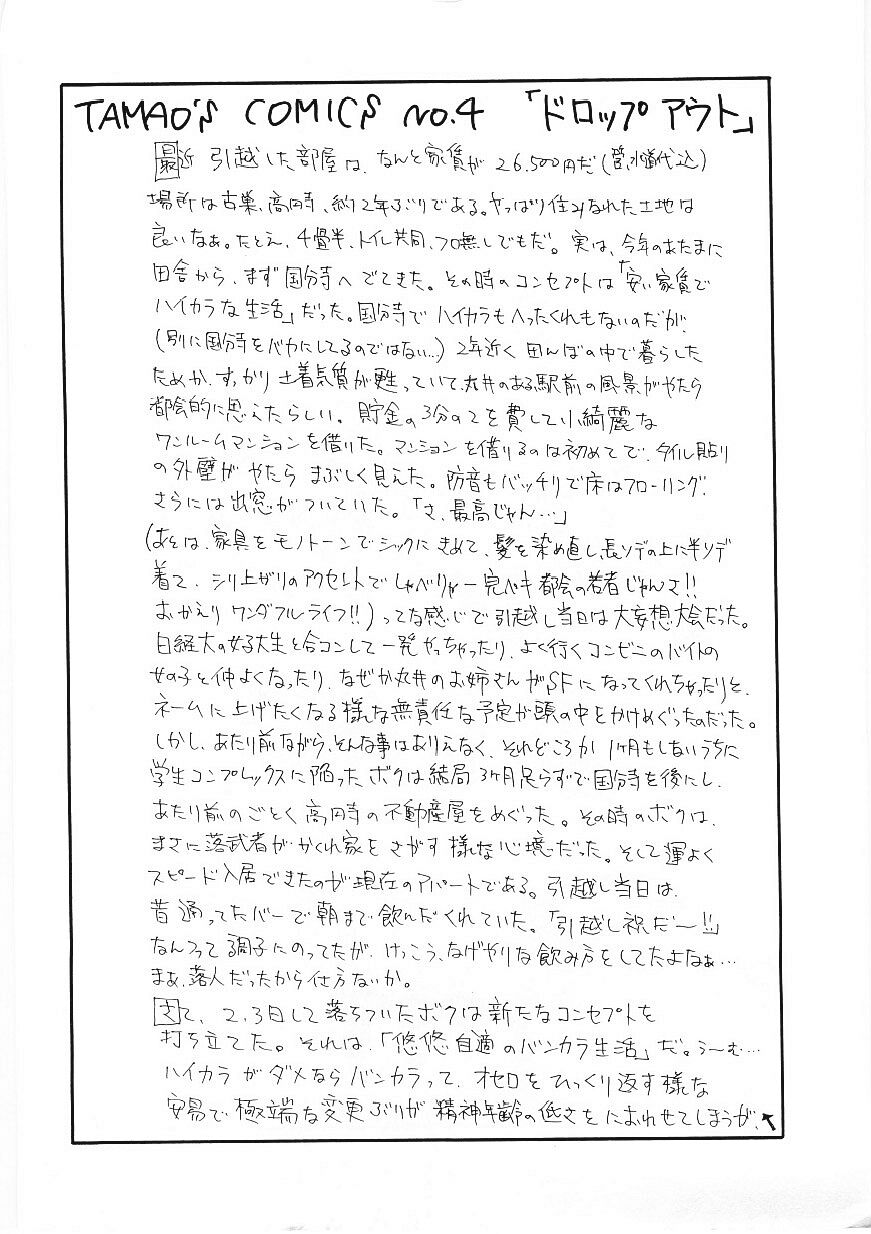 TAMAO'S COMICS NO.4 「ドロップアウト」
最近 引越した部屋は、なんと家賃が 26,500円だ(管、水道代込)
場所は古巣、高円寺、約2年ぶりである。やっぱり住みなれた土地は
良いなぁ。たとえ、4畳半、トイレ共同、フロ無しでもだ。実は、今年のあたまに
田舎から、まず国分寺へでてきた。その時のコンセプトは「安い家賃で
ハイカラな生活」だった。国分寺でハイカラもへったくれもないのだが、
(別に国分寺をバカにしてるのではない…)2年近く田んぼの中で暮らした
ためか、すっかり土着気質が甦っていて、丸井のある駅前の風景がやたら
都会的に思えたらしい。貯金の3分の2を費して小綺麗な
ワンルームマンションを借りた。マンションを借りるのは初めてで、タイル貼り
の外壁がやたらまぶしく見えた。防音もバッチリで床はフローリング、
さらには出窓がついていた。「さ、最高じゃん…」
(あとは、家具をモノトーンでシックにきめて、髪を染め直し、長ソデの上に半ソデ
着て、シリ上がりのアクセントでしゃべりゃー完ペキ都会の若者じゃんさ!!
おかえりワンダフルライフ!!)ってな感じで引越し当日は大妄想大会だった。
日経大の女子大生と合コンして一発やっちゃったり、よく行くコンビニのバイトの
女の子と仲よくなったり、なぜか丸井のお姉さんがSFになってくれちゃったりと、
ネームに上げたくなる様な無責任な予定が頭の中をかけめぐったのだった。
しかし、あたり前ながら、そんな事はありえなく、それどころか1ヶ月もしないうちに
学生コンプレックスに陥ったボクは結局3ヶ月足らずで国分寺を後にし、
あたり前のごとく高円寺の不動産屋をめぐった。その時のボクは、
まさに落武者がかくれ家をさがす様な心境だった。そして運よく
スピード入居できたのが現在のアパートである。引越し当日は、
昔通ってたバーで朝まで飲んだくれていた。「引越し祝だ〜!!」
なんつって調子にのってたが、けっこう、なげやりな飲み方をしてたよなぁ…
まぁ、落人だったから仕方ないか。
さて、2、3日して落ちついたボクは新たなコンセプトを
打ち立てた。それは、「悠悠自適のバンカラ生活」だ。う〜む…
ハイカラがダメならバンカラって、オセロをひっくり返す様な
安易で極端な変更ぶりが精神年齢の低さをにおわせてしまうが、